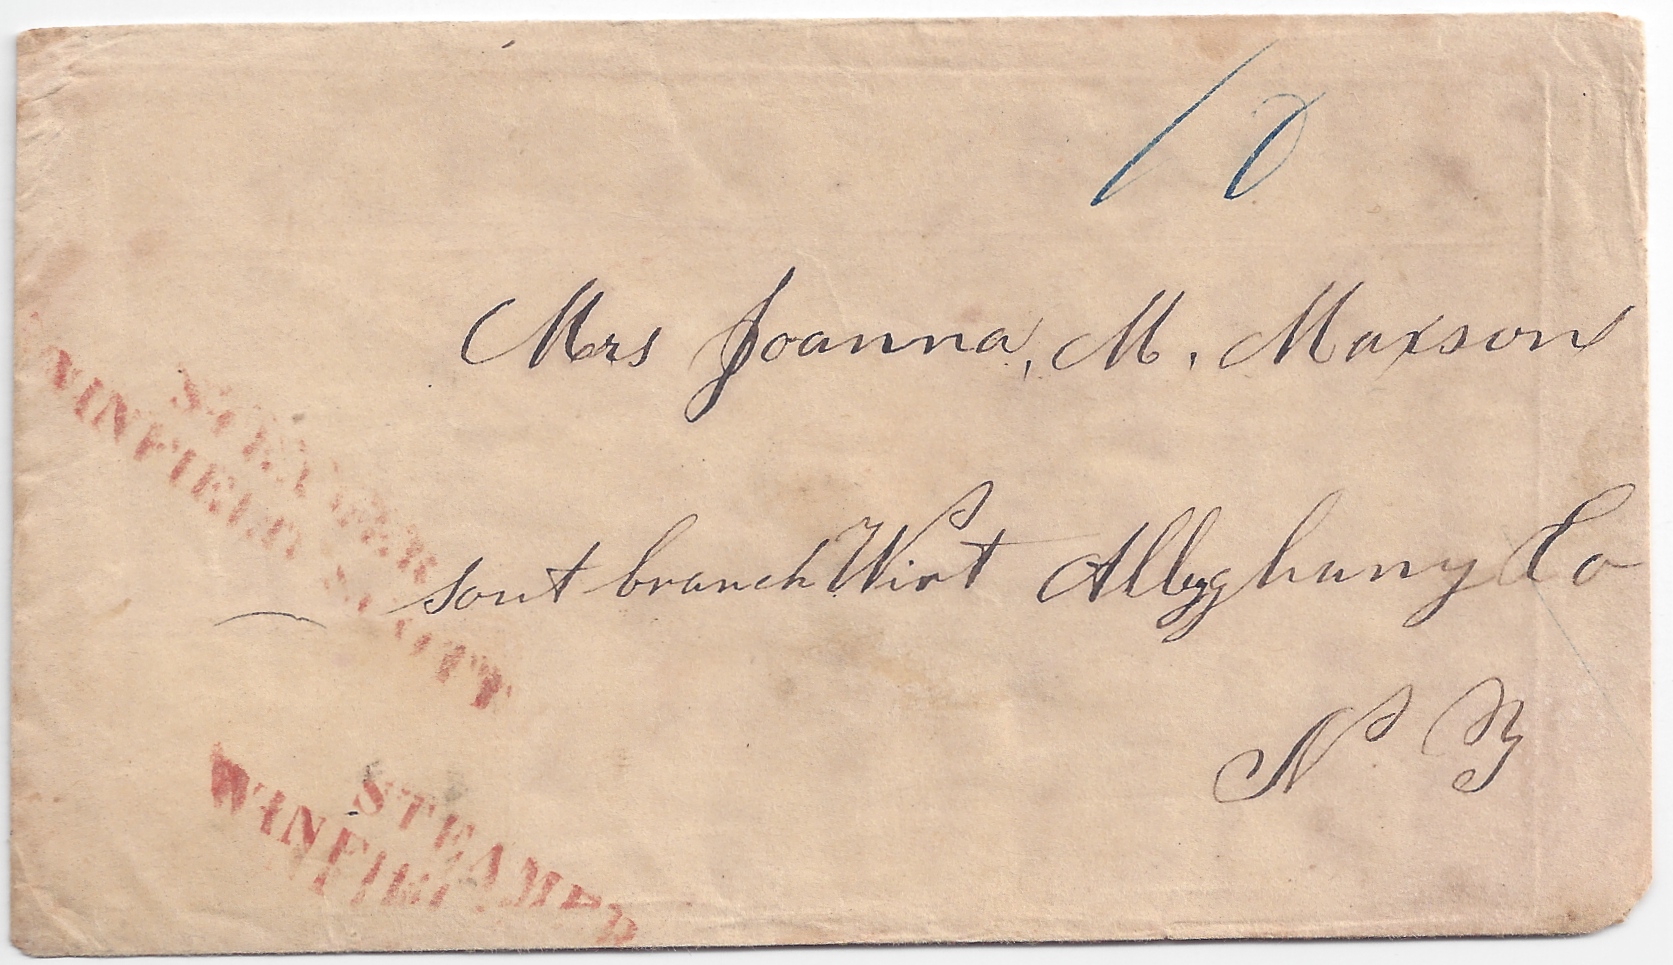 10
Mrs Joanna, M. Maxson
sout branch Wirt Alleghany Co
N. Y
STEAMER
WINFIELD SCOTT
STEAMER
WINFIEL